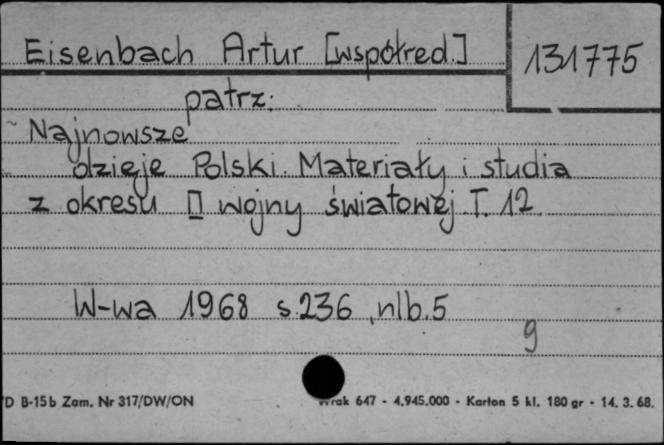 Eisenbach Artur [współred.]
131775
patrz:
Najnowsze
dzieje Polski. Materiały i studia
z okresu II wojny światowej. T. 12
W-wa 1968 s. 236, nlb. 5
9
D B-15b Zam. Nr 317/DW/ON
Wrak 647 - 4.945.000 - Karton 5 kl. 180 gr - 14. 3. 68.